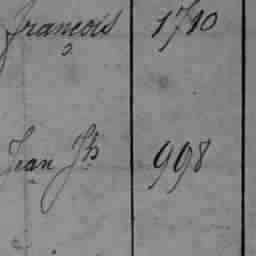 François 1710
Jean Jh 998